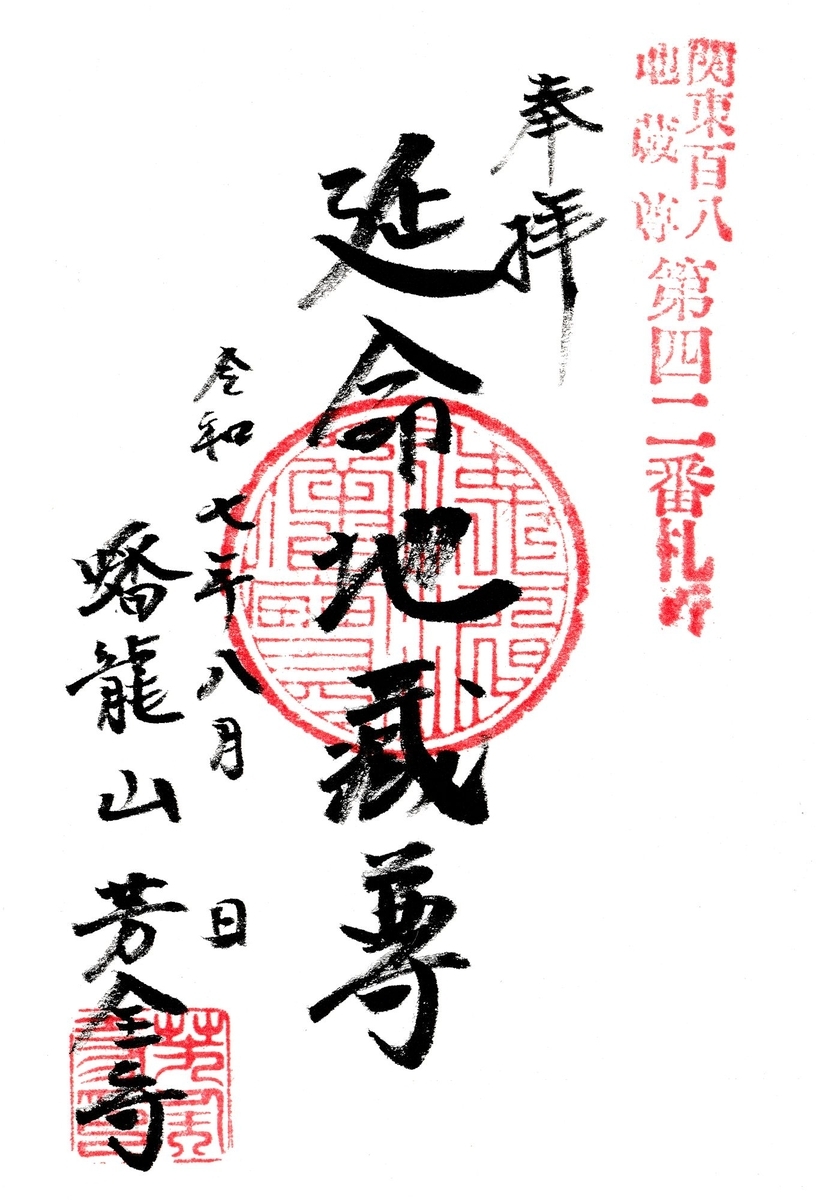 関東百八
地蔵尊
第四二番札所
奉拝
延命地蔵尊
令和七年八月 日
蟠龍山 芳全寺